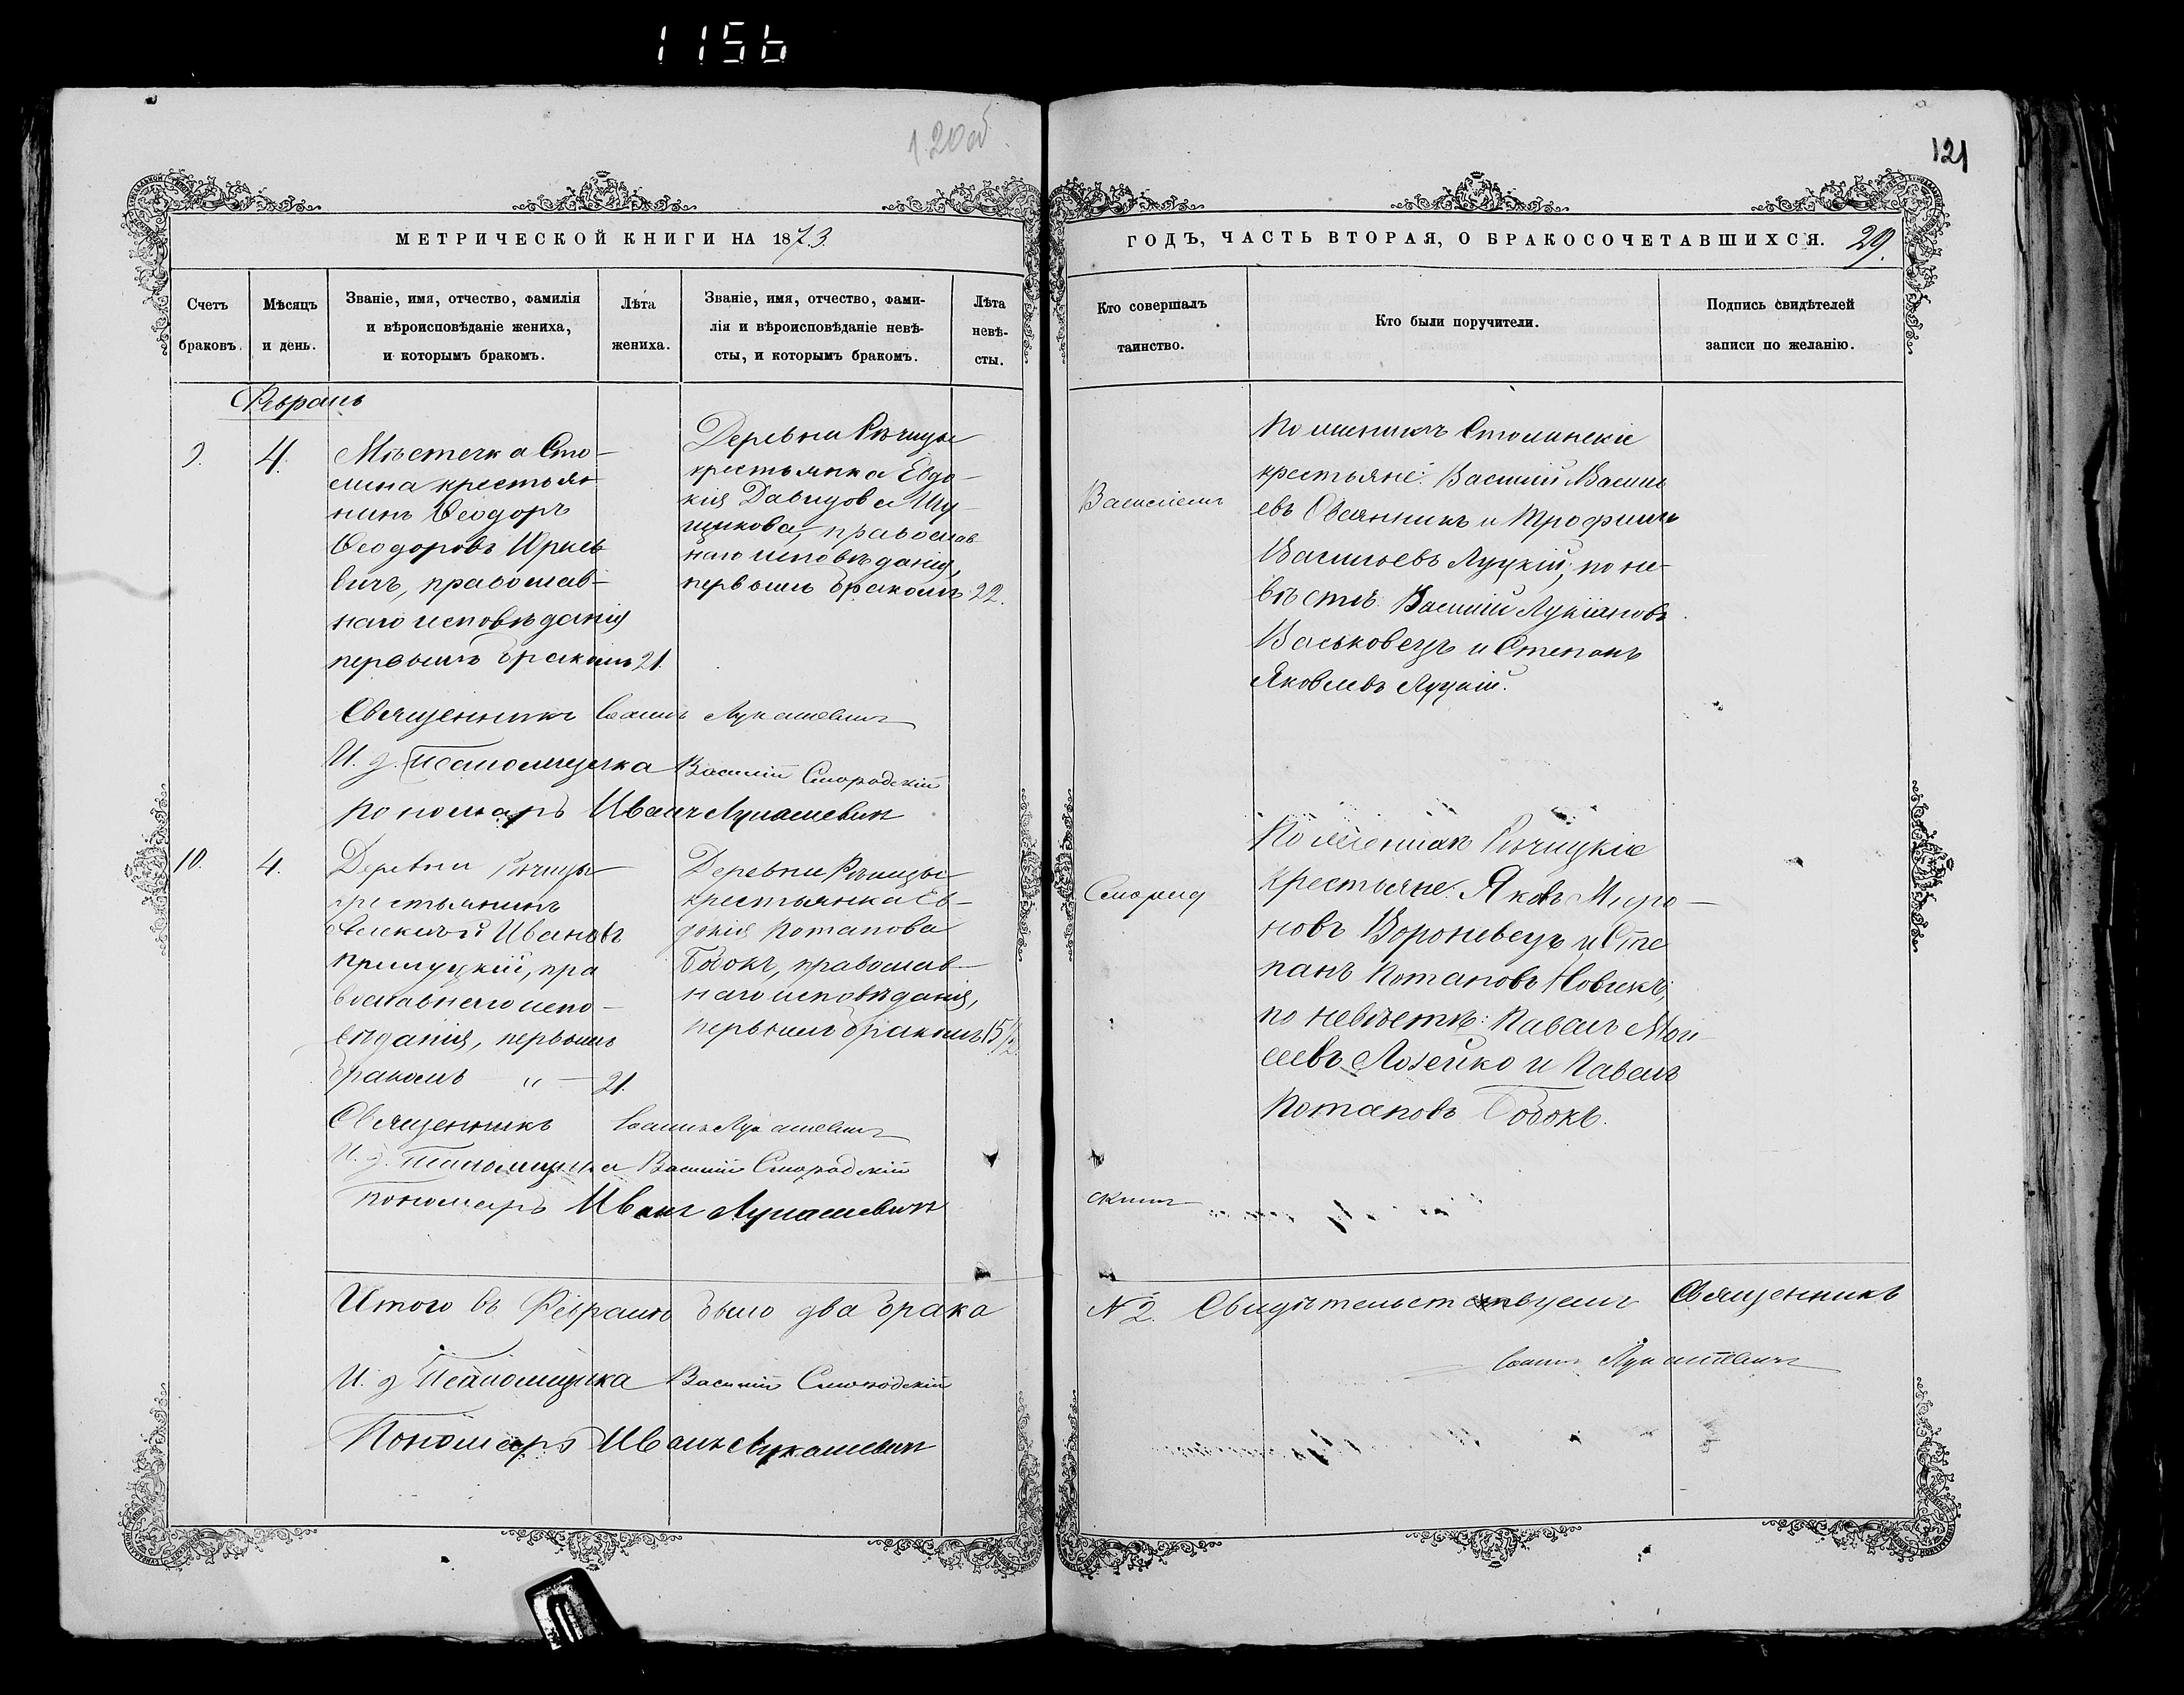 1156
120об
121
МЕТРИЧЕСКОЙ КНИГИ НА 1873
ГОДЪ, ЧАСТЬ ВТОРАЯ, О БРАКОСОЧЕТАВШИХСЯ. 29.
Счетъ браковъ.
Мѣсяцъ и день.
Званіе, имя, отчество, фамилія
и вѣроисповѣданіе жениха,
и которымъ бракомъ.
Лѣта
жениха.
Званіе, имя, отчество, фами-
лія и вѣроисповѣданіе невѣ-
сты, и которымъ бракомъ.
Лѣта
невѣ-
сты.
Кто совершалъ
таинство.
Кто были поручители.
Подпись свидѣтелей
записи по желанію.
Февраль
9. 4.
Мѣстечка Сто-
лина крестьян
нинъ Ѳеодоръ
Ѳеодоровъ Юрке
вичъ, православ-
наго исповѣданія
первымъ бракомъ 21.
Деревни Рѣчицы
крестьянка Евдо-
кія Давидова
православ
наго исповѣданія,
первымъ бракомъ 22.
Василіемъ
По женихѣ Столинскіе
крестьяне: Василій Василь
евъ Овсянникъ и Трофимъ
Васильевъ Луцкій; по не-
вѣстѣ: Василій Лукіановъ
Васьковецъ и Степанъ
Яковлевъ Луцкій.
Священникъ Іоаннъ Лукашевичъ
И. д. Псаломщика Василій Смородскій
Пономарь Иванъ Лукашевичъ
10. 4.
Деревни Рѣчицы
крестьянинъ
Алексѣй Ивановъ
Прилуцкій, пра
вославнаго испо-
вѣданія, первымъ
бракомъ „ — 21.
Деревни Рѣчицы
крестьянка Ев-
докія Потапова
Бобокъ, православ-
наго исповѣданія,
первымъ бракомъ 15½
Смород
скимъ
По женихѣ Рѣчицкіе
крестьяне: Яковъ Миро-
новъ Вороневецъ и Сте
панъ Потаповъ Новикъ;
по невѣстѣ: Павелъ Мои-
сеевъ Лозейко и Павелъ
Потаповъ Бобокъ.
Священникъ Іоаннъ Лукашевичъ
И. д. Псаломщика Василій Смородскій
Пономарь Иванъ Лукашевичъ
Итого въ Февралѣ было два брака
№ 2. Свидѣтельствуемъ Священникъ
Іоаннъ Лукашевичъ
И. д. Псаломщика Василій Смородскій
Пономарь Иванъ Лукашевичъ